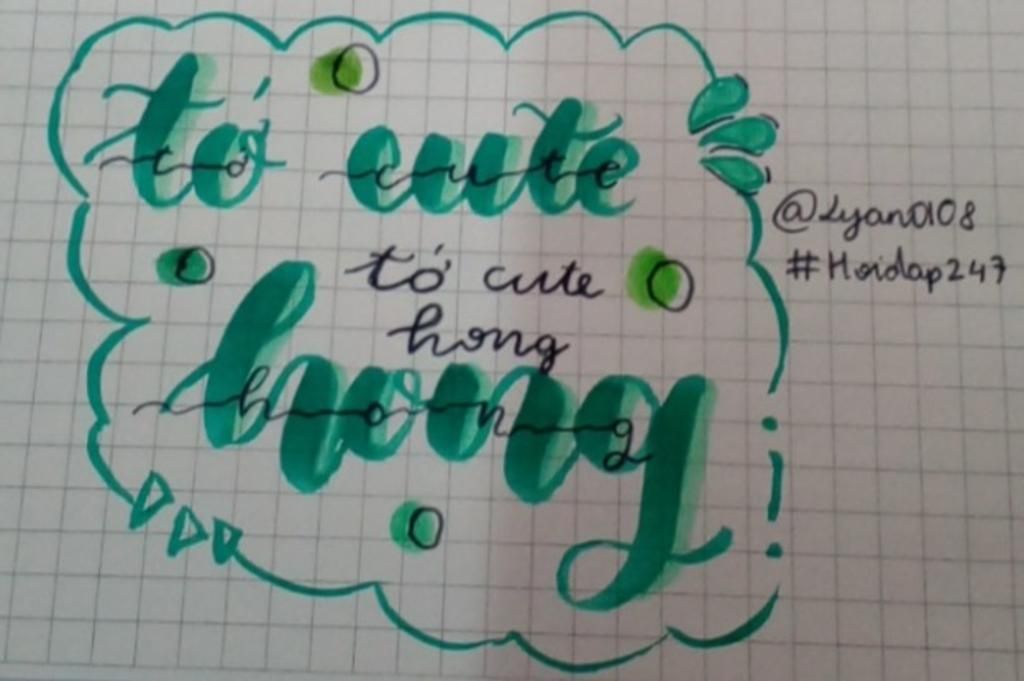 tớ cute
tớ cute
@Lyan0108
#Hoidap247
tớ cute
hong
hong
hong